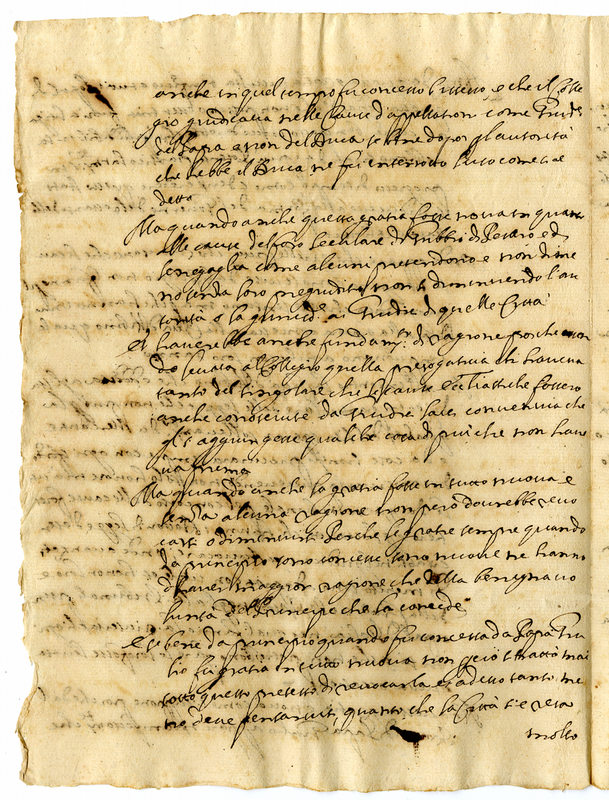 anche in quel tempo fu concesso l'istesso, e che il Colle
gio giudicava nelle Cause d'appellationi come Giud.e
del Papa e non del Duca se bene dopo gl'autorità
che hebbe il Duca ne fu interrotto l'uso come si è
detto
Ma quando anche questa gratia fosse nova in quanto
alle cause del foro secolare di Gubbio di Pesaro ed
Senegaglia come alcuni pretendono e non di me
no senza loro pregiuditio non si diminuendo l'au
torità o la giurisd.e ai Giudici di quelle Città
Et haverebbe anche fundam.to di ragione perche essen
do levata al Collegio quella prerogativa che haveva
tanto del singolare che le cause Ecclesiastiche fossero
anche conosciute da Giudici laici conveniva che
gli s'aggiungesse qualche cosa di più che non have
va prima
Ma quando anche la gratia fosse in tutto nuova e
senza alcuna ragione non però dovrebbe revo
carsi o diminuirsi Perche le gratie sempre quando
da principio sono concesse sono nuove ne hanno
d'haver maggior ragione che della benigna vo
luntà del Principe che la concede
E se bene da principio quando fu concessa da Papa Giu
lio fu gratia in tutto nuova non però si trattò mai
sotto questo pretesto di revocarla et adesso tanto me
no deve pensarvisi, quanto che la Città si è resa
molto